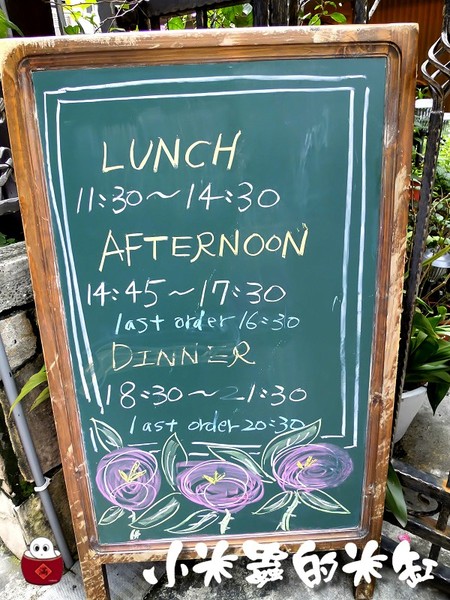 LUNCH
11:30～14:30
AFTERNOON
14:45～17:30
last order 16:30
DINNER
18:30～21:30
last order 20:30
小米蟲的米缸